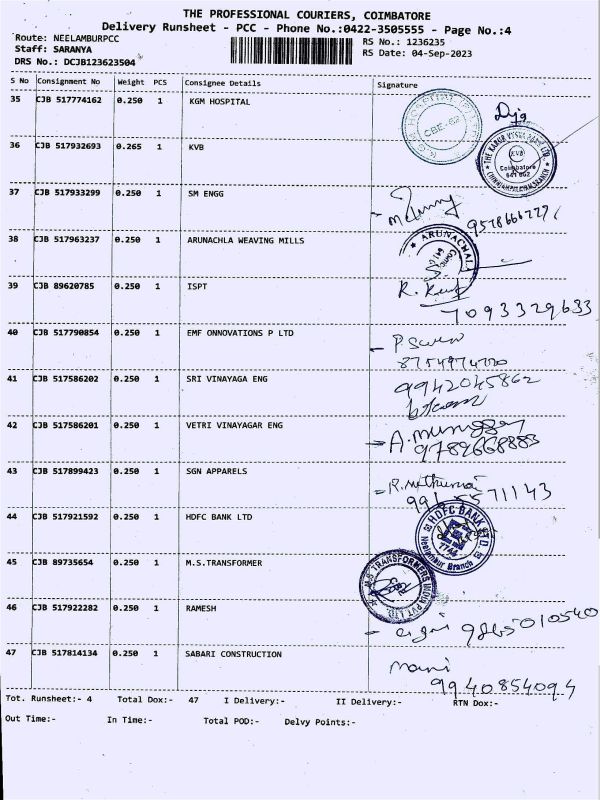 THE PROFESSIONAL COURIERS, COIMBATORE
Delivery Runsheet - PCC - Phone No.:0422-3505555 - Page No.:4
Route: NEELAMBURPCC
RS No.: 1236235
Staff: SARANYA
RS Date: 04-Sep-2023
DRS No.: DCJB123623504
S No Consignment No Weight PCS Consignee Details Signature
35 CJB 517774162 0.250 1 KGM HOSPITAL
CBE-62
36 CJB 517932693 0.265 1 KVB
THE KARUR VYSYA BANK LTD.
KVB
Coimbatore
641 062
37 CJB 517933299 0.250 1 SM ENGG
38 CJB 517963237 0.250 1 ARUNACHLA WEAVING MILLS
ARUNACHALA
39 CJB 89620785 0.250 1 ISPT
7093329633
40 CJB 517790854 0.250 1 EMF ONNOVATIONS P LTD
41 CJB 517586202 0.250 1 SRI VINAYAGA ENG
9942045862
42 CJB 517586201 0.250 1 VETRI VINAYAGAR ENG
9789668883
43 CJB 517899423 0.250 1 SGN APPARELS
44 CJB 517921592 0.250 1 HDFC BANK LTD
HDFC BANK LTD.
Neelambur Branch
45 CJB 89735654 0.250 1 M.S.TRANSFORMER
M.S TRANSFORMERS INDIA PVT LTD
46 CJB 517922282 0.250 1 RAMESH
9865010540
47 CJB 517814134 0.250 1 SABARI CONSTRUCTION
mani
9940854094
Tot. Runsheet:- 4 Total Dox:- 47 I Delivery:- II Delivery:- RTN Dox:-
Out Time:- In Time:- Total POD:- Delvy Points:-